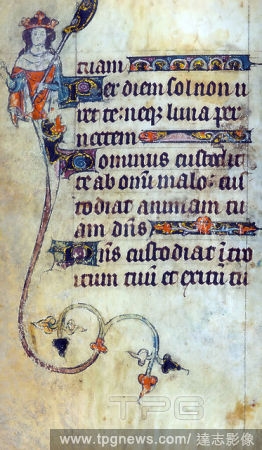 tuam
Per diem sol non u
ret te: neq luna per
noctem
Dominus custodit
te ab omni malo: cus
todiat animam tu
am dñs
Dñs custodiat ītro
itum tuū et exitū tu
TPG
www.tpgnews.com/ 達志影像